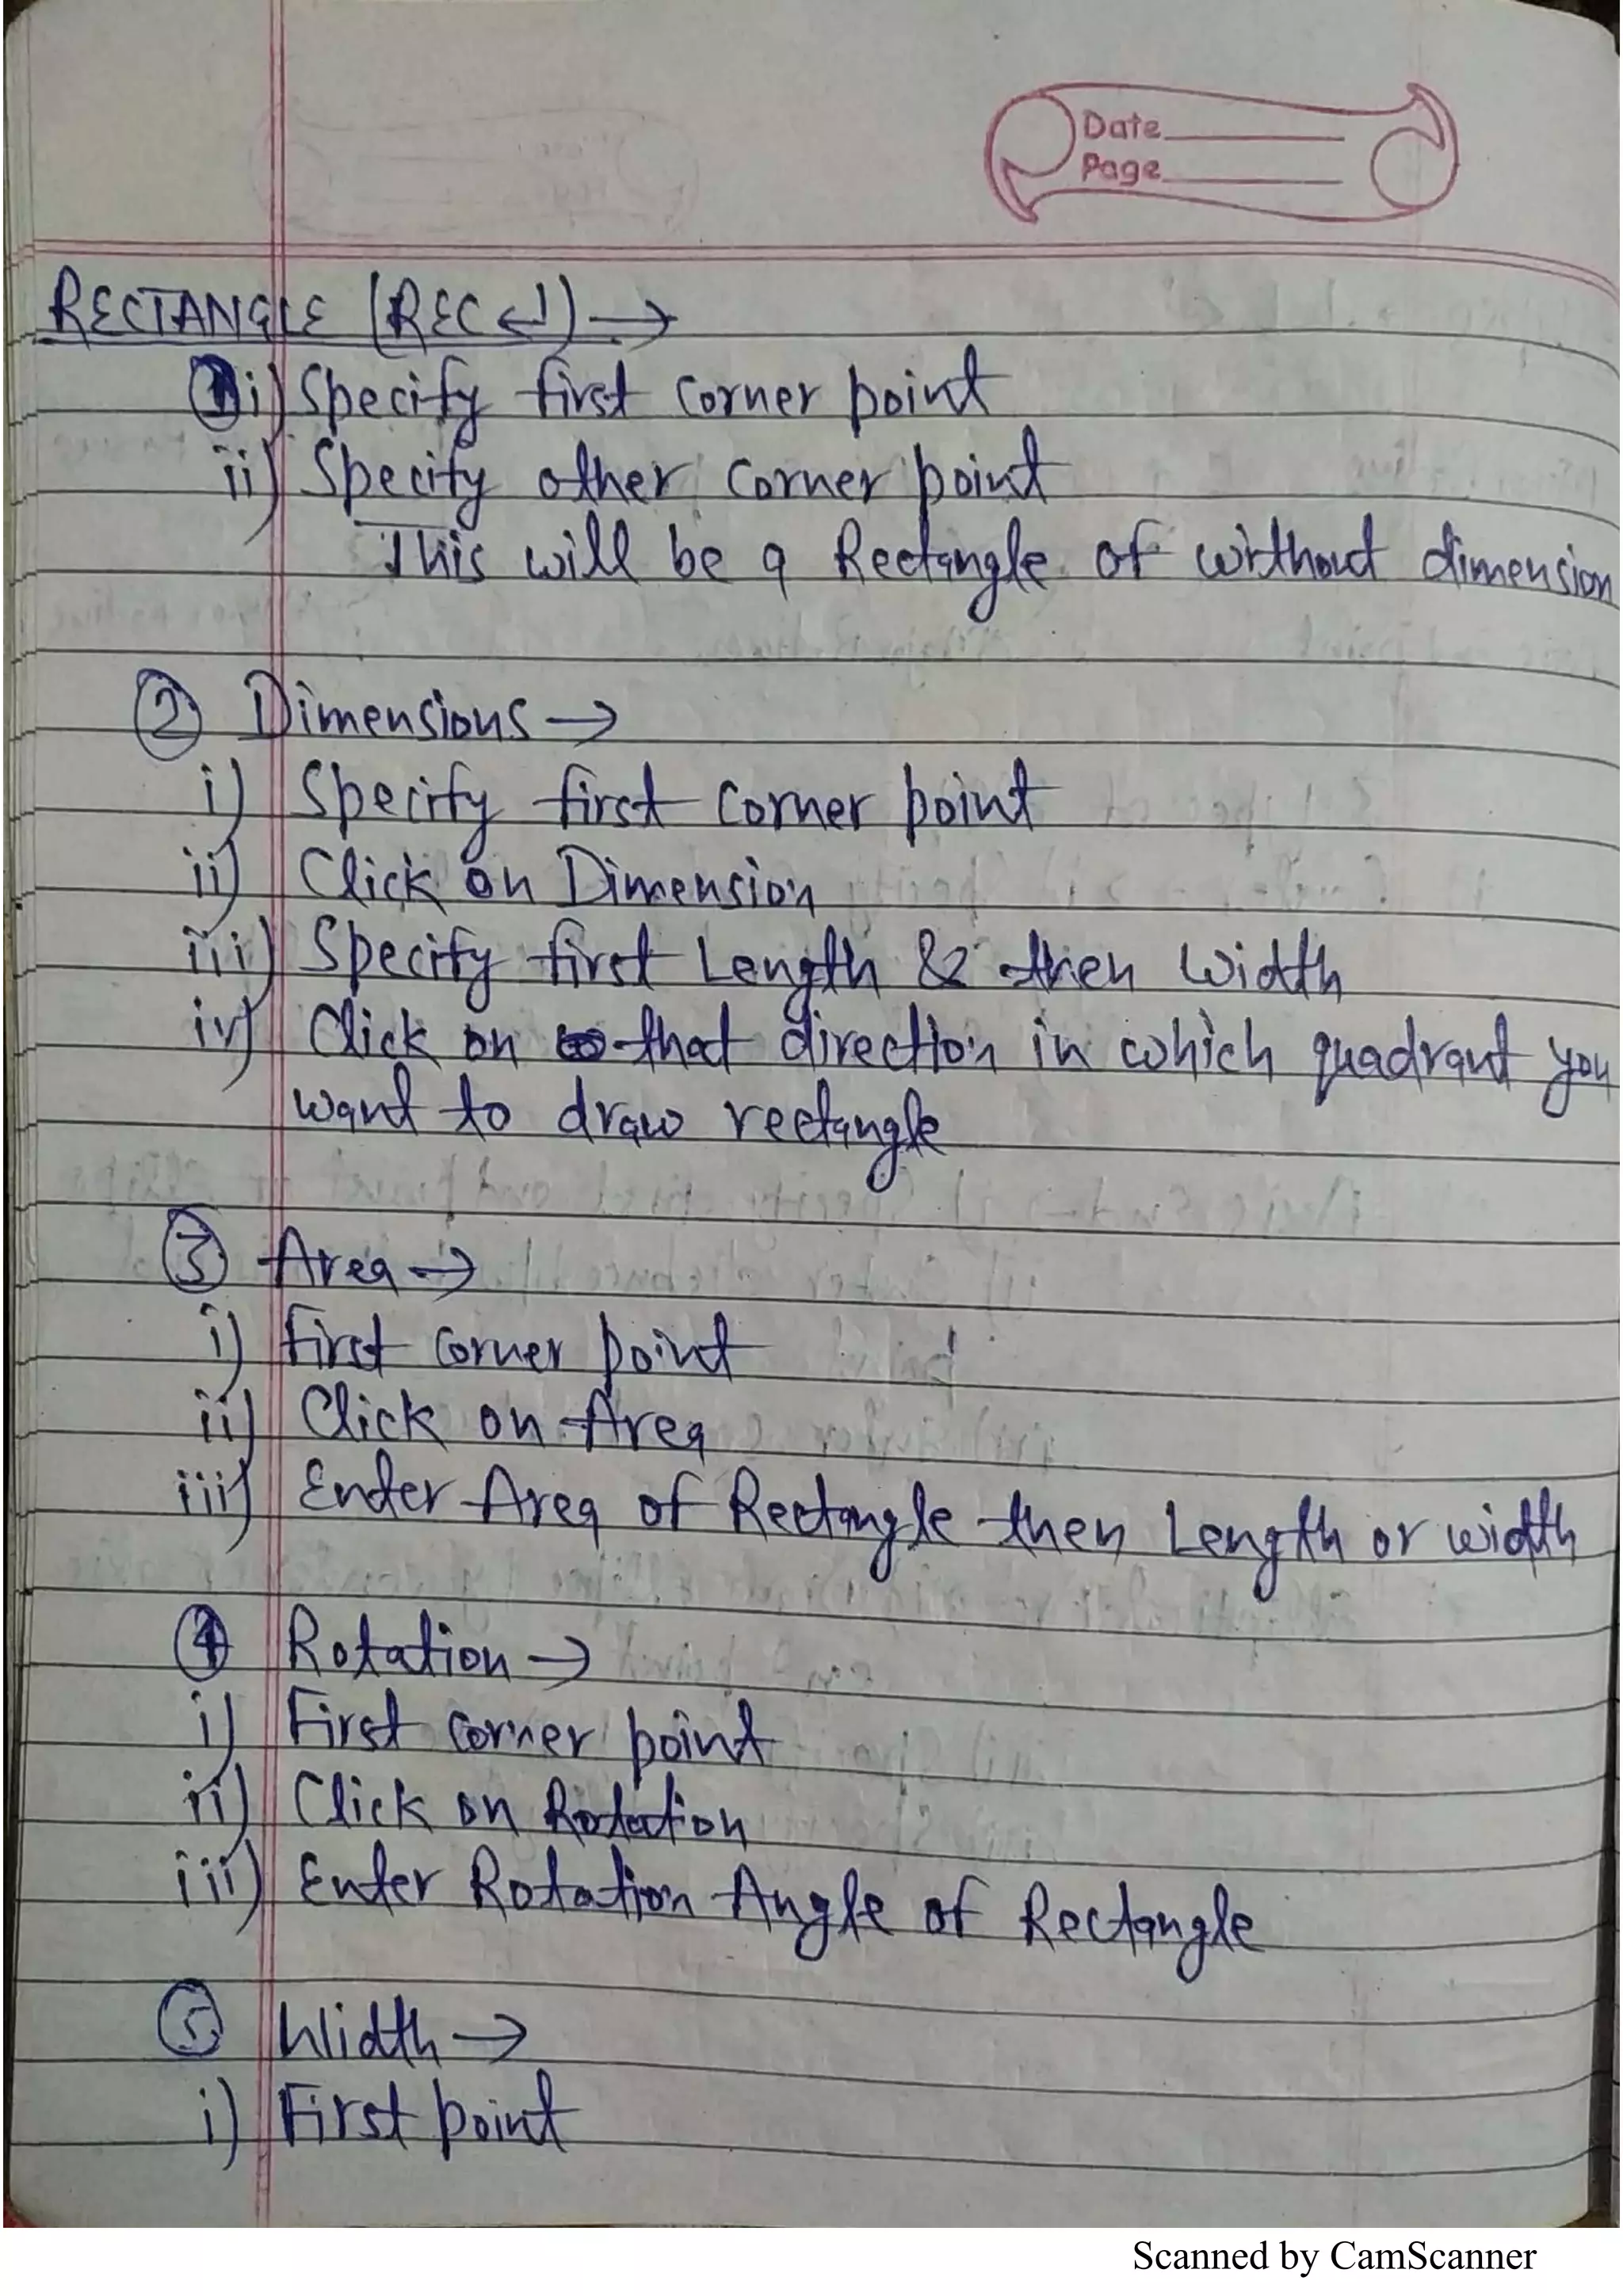 Date
Page
RECTANGLE (REC↵) →
① i) Specify first corner point
ii) Specify other corner point
This will be a Rectangle of without dimension
② Dimensions →
i) Specify first corner point
ii) Click on Dimension
iii) Specify first Length & then Width
iv) Click on that direction in which quadrant you
want to draw rectangle
③ Area →
i) First corner point
ii) Click on Area
iii) Enter Area of Rectangle then Length or width
④ Rotation →
i) First corner point
ii) Click on Rotation
iii) Enter Rotation Angle of Rectangle
⑤ Width →
i) First point
Scanned by CamScanner